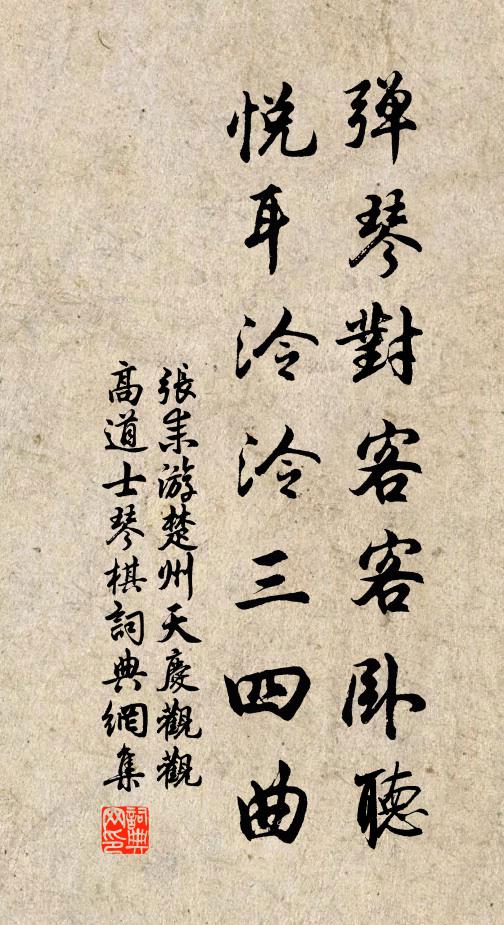 弹琴對客客卧聽
悦耳泠泠三四曲
張耒游楚州天慶觀觀
高道士琴棋詞典網集
詞典网印